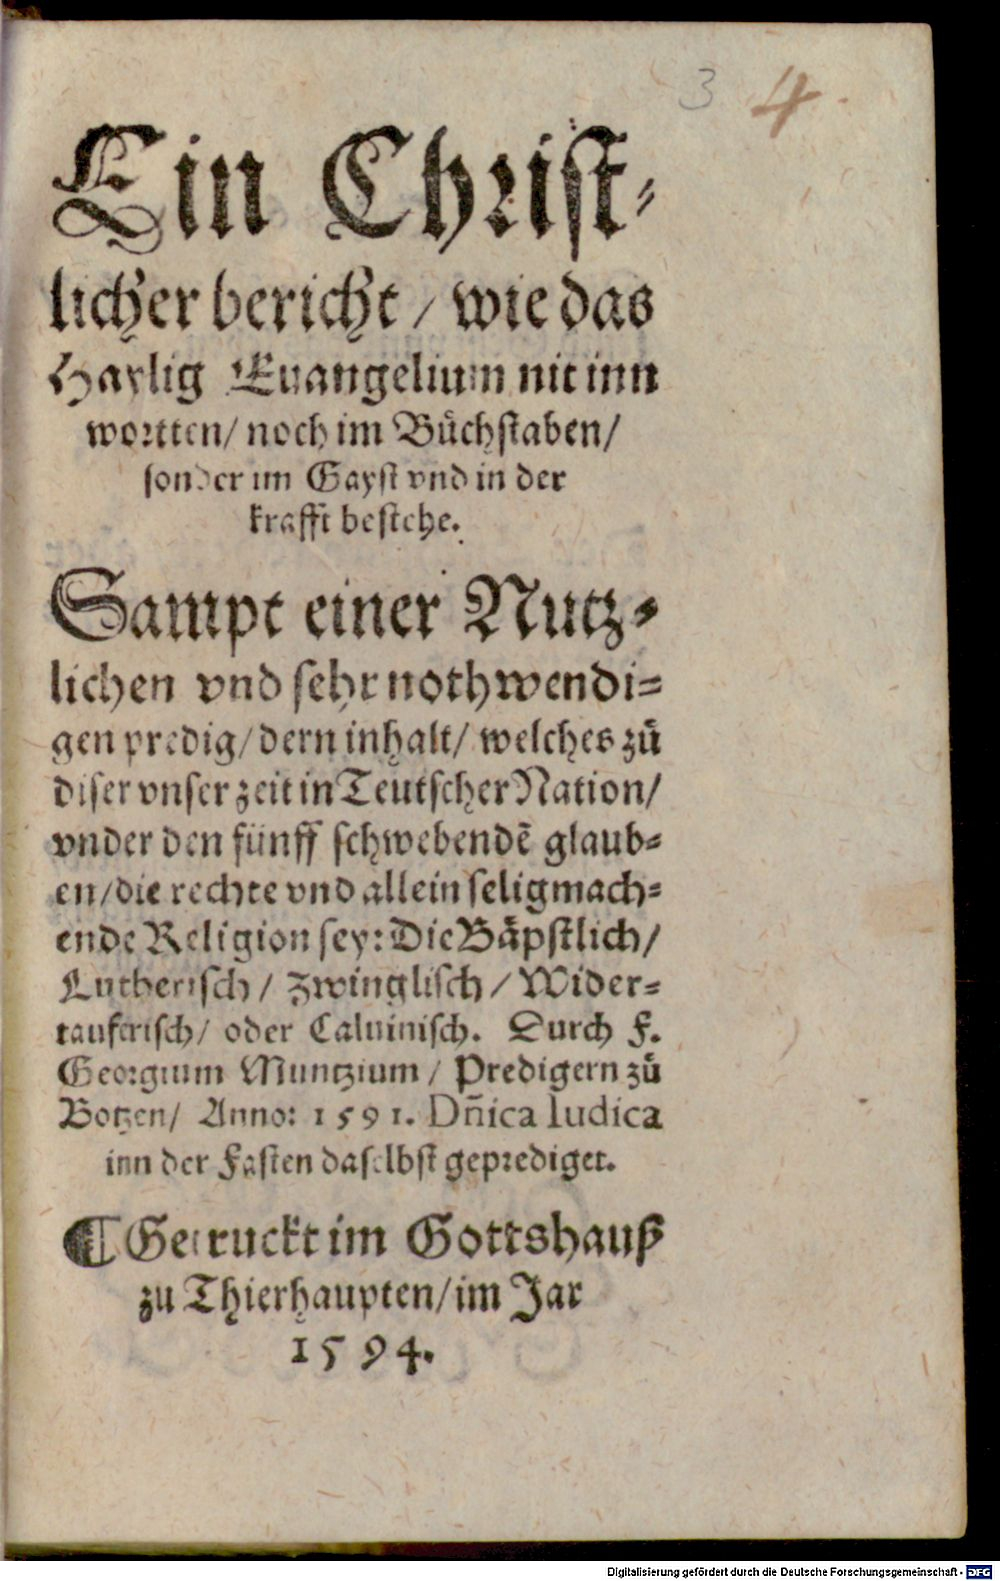 3 4
Ein Christ-
licher bericht / wie das
Haylig Euangelium nit inn
wortten / noch im Bůchstaben /
sonder im Gayst vnd in der
krafft bestehe.
Sampt einer Nutz-
lichen vnd sehr nothwendi-
gen predig / dern inhalt / welches zů
diser vnser zeit in Teutscher Nation /
vnder den fünff schwebendē glaub-
en / die rechte vnd allein seligmach-
ende Religion sey: Die Bäpstlich /
Lutherisch / Zwinglisch / Wider-
tauferisch / oder Caluinisch. Durch F.
Georgium Muntzium / Predigern zů
Botzen / Anno: 1591. Dñica Iudica
inn der Fasten daselbst geprediget.
¶ Getruckt im Gottshauß
zu Thierhaupten / im Jar
1594.
Digitalisierung gefördert durch die Deutsche Forschungsgemeinschaft - DFG